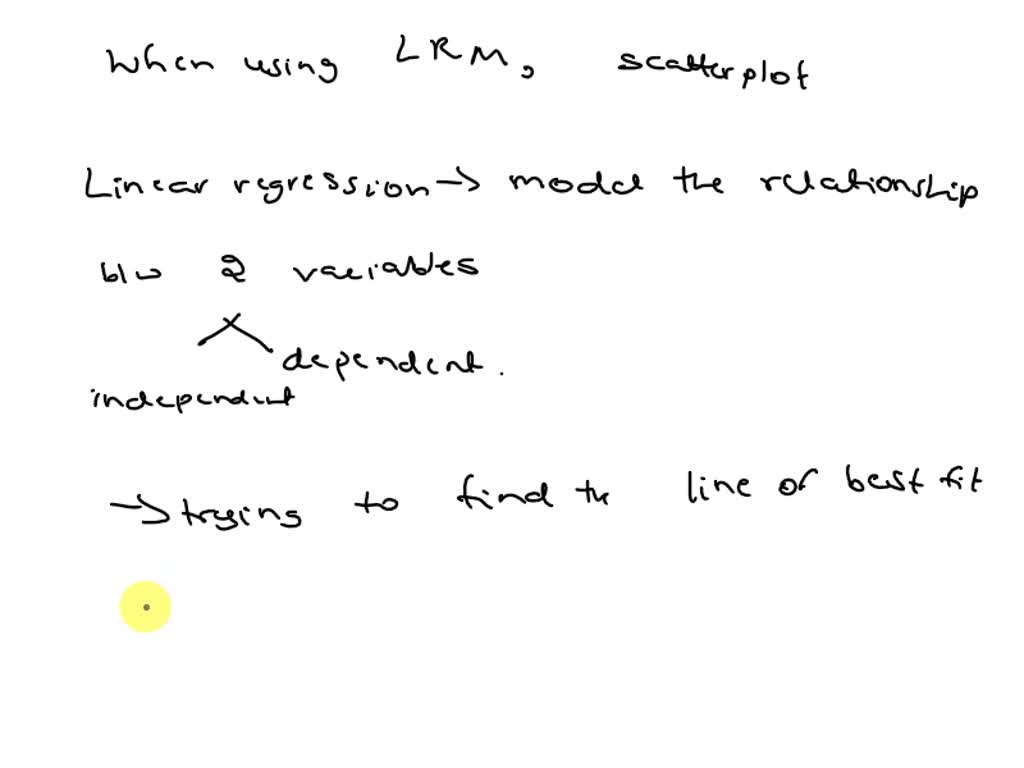 When using LRM, scatterplot
Linear regression → model the relationship
b/w 2 variables
dependent.
independent
→ trying to find the line of best fit